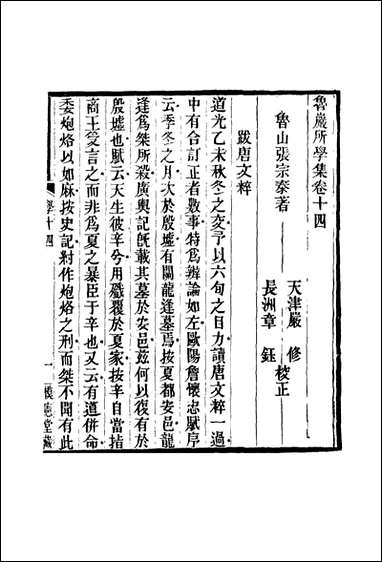 魯巖所學集卷十四
魯山張宗泰著
天津嚴 修
長洲章 鈺
校正
跋唐文粹
道光乙未秋冬之交予以六旬之目力讀唐文粹一過
中有合訂正者數事特為辨論如左歐陽詹懷忠賦序
云季冬之月次於殷墟有關龍逢墓焉按夏都安邑龍
逢為桀所殺廣輿記旣載其墓於安邑茲何以復有於
殷墟也賦云天生彼辛兮用殲覆於夏家按辛自當指
商王受言之而非為夏之暴臣于辛也又云有道併命
委炮烙以如麻按史記紂作炮烙之刑而桀不聞有此
學十四
一
模憲堂藏